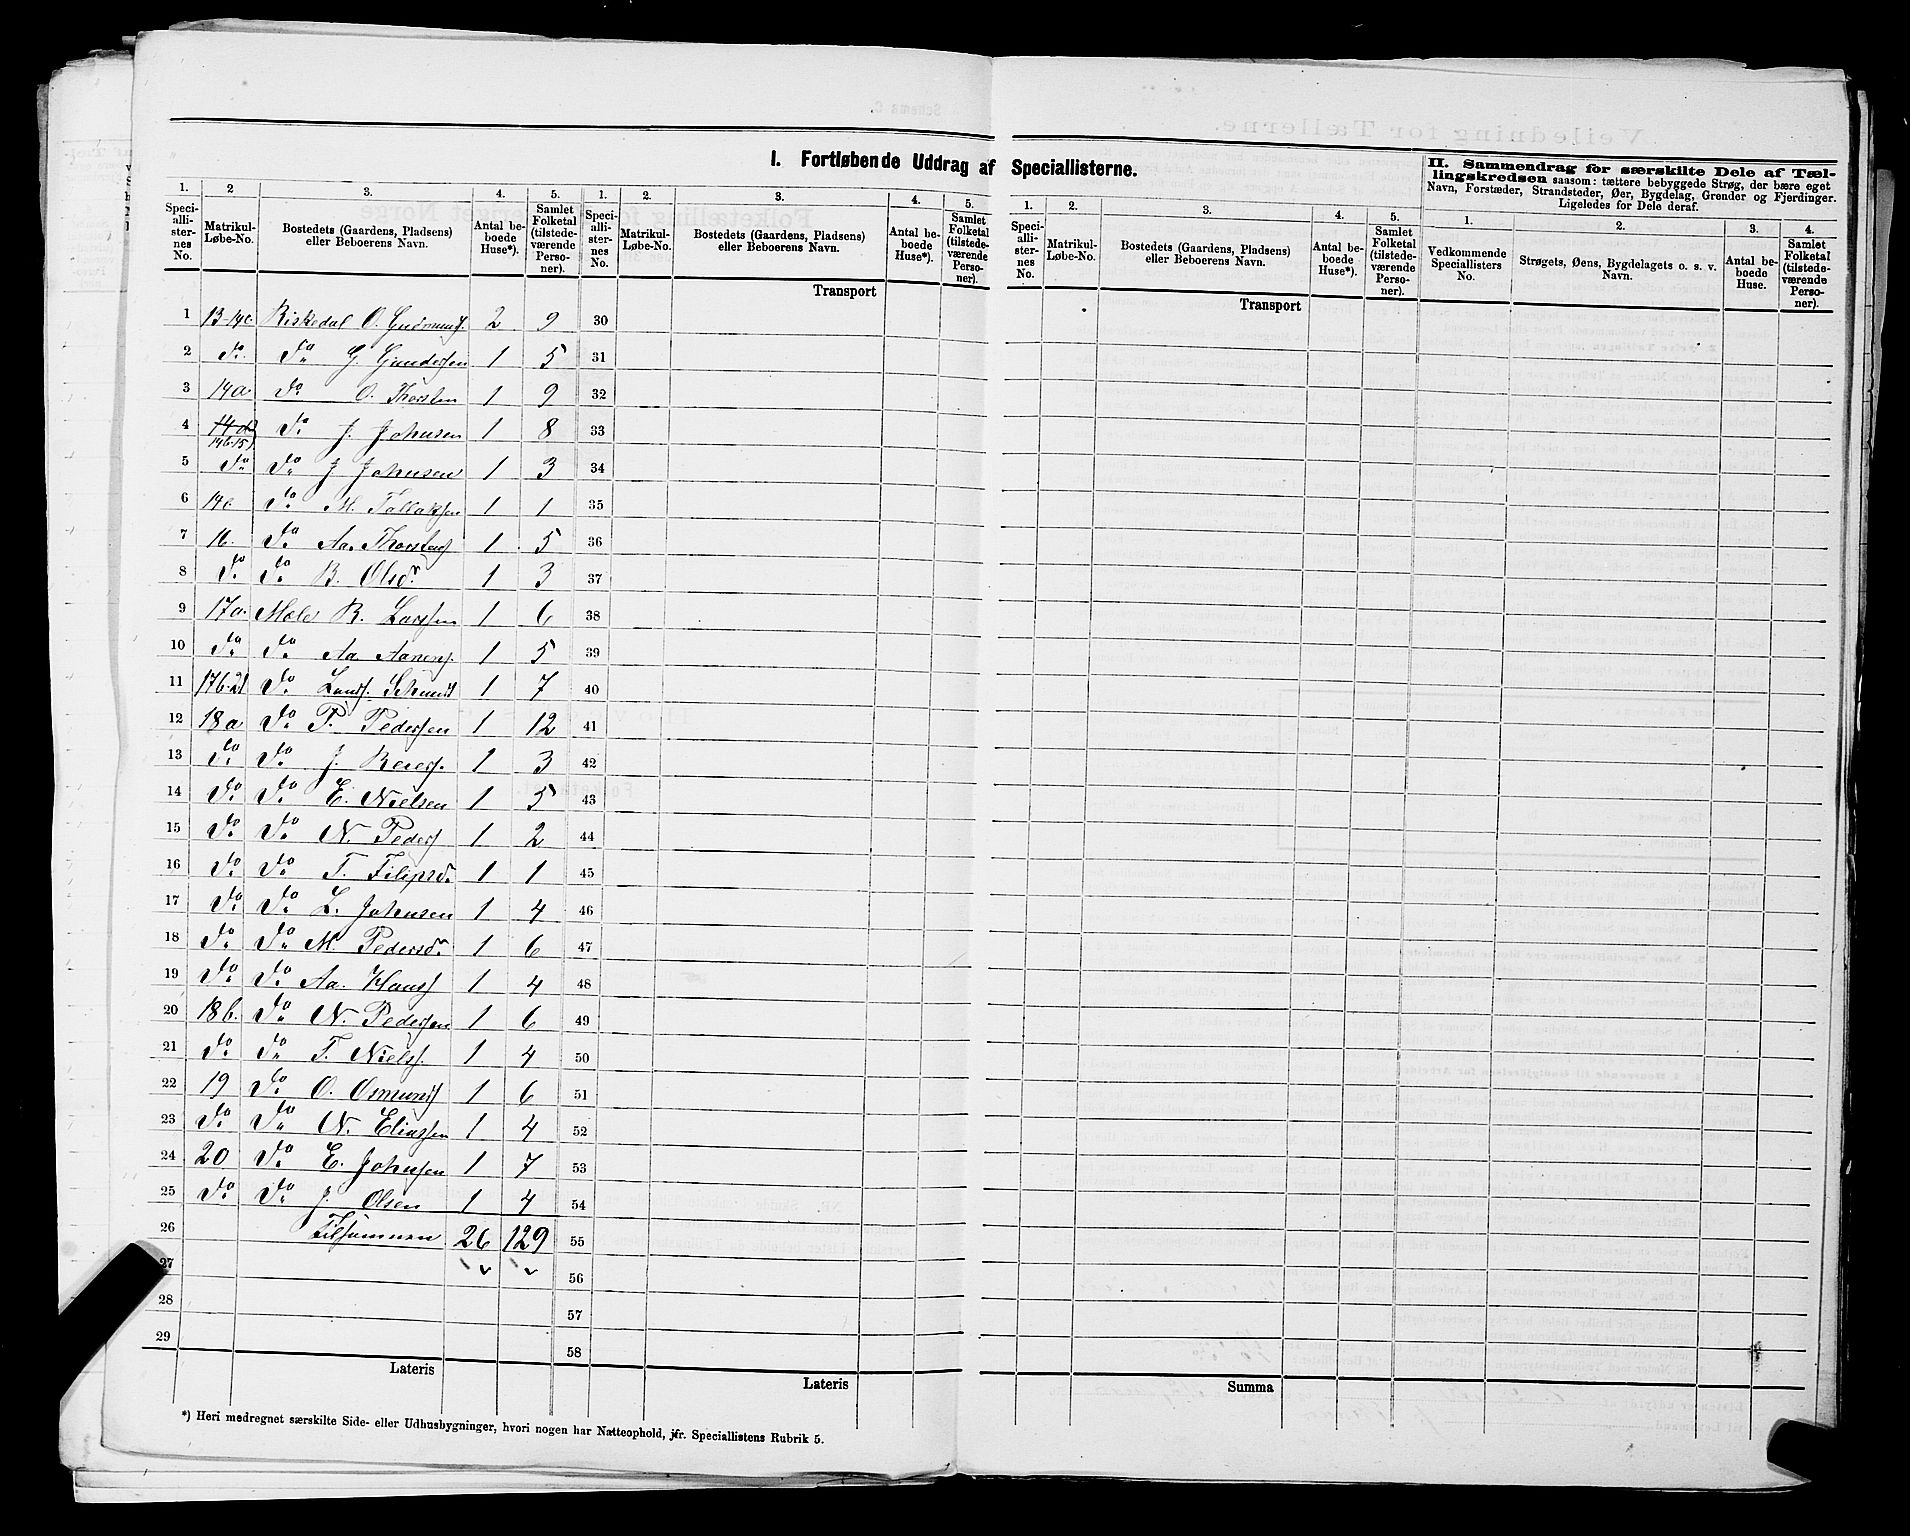 I. Fortløbende Uddrag af Speciallisterne.
II. Sammendrag for særskilte Dele af Tællingskredsen saasom: tættere bebyggede Strøg, der bære eget
Navn, Forstæder, Strandsteder, Øer, Bygdelag, Grender og Fjerdinger.
Ligeledes for Dele deraf.
1. 2 3. 4. 5. 1. 2. 3. 4. 5. 1. 2. 3. 4. 5. 1. 2. 3. 4.
Speciallisternes No. Matrikul-Løbe-No. Bostedets (Gaardens, Pladsens) eller Beboerens Navn. Antal beboede Huse*). Samlet Folketal (tilstedeværende Personer).
Speciallisternes No. Matrikul-Løbe-No. Bostedets (Gaardens, Pladsens) eller Beboerens Navn. Antal beboede Huse*). Samlet Folketal (tilstedeværende Personer).
Speciallisternes No. Matrikul-Løbe-No. Bostedets (Gaardens, Pladsens) eller Beboerens Navn. Antal beboede Huse*). Samlet Folketal (tilstedeværende Personer).
Vedkommende Speciallisters No. Strøgets, Øens, Bygdelagets o. s. v. Navn. Antal beboede Huse. Samlet Folketal (tilstedeværende Personer).
Transport Transport
1 13-14c Riskedal O. Gudmunds. 2 9 30
2 do. do G. Gundersen 1 5 31
3 14a do O. Thorsten 1 9 32
4 14d 14b.15 do J. Johnsen 1 8 33
5 do do J Johnsen 1 3 34
6 14c do M. Tollaksen 1 1 35
7 16. do Aa. Thorstens 1 5 36
8 do do B. Olsdr 1 3 37
9 17a Mele R. Larssen 1 6 38
10 do do Aa. Aanens. 1 5 39
11 17b.21 do 1 7 40
12 18a do P. Pedersen 1 12 41
13 do do J. 1 3 42
14 do do E. Nielsen 1 5 43
15 do do N. Peders 1 2 44
16 do do T. Filipsd. 1 1 45
17 do do L. Johnsen 1 4 46
18 do do M. Pedersdr 1 6 47
19 do do Aa. Hans 1 4 48
20 18b. do N. Pedersen 1 6 49
21 do do T. Niels. 1 4 50
22 19 do O. Osmunds 1 6 51
23 do do N. Eliassen 1 4 52
24 20 do E. Johnsen 1 7 53
25 do do J. Olsen 1 4 54
26 Tilsammen 26 129 55
27 56
28 57
29 58
Lateris Lateris Summa
*) Heri medregnet særskilte Side- eller Udhusbygninger, hvori nogen har Natteophold, jfr. Speciallistens Rubrik 5.